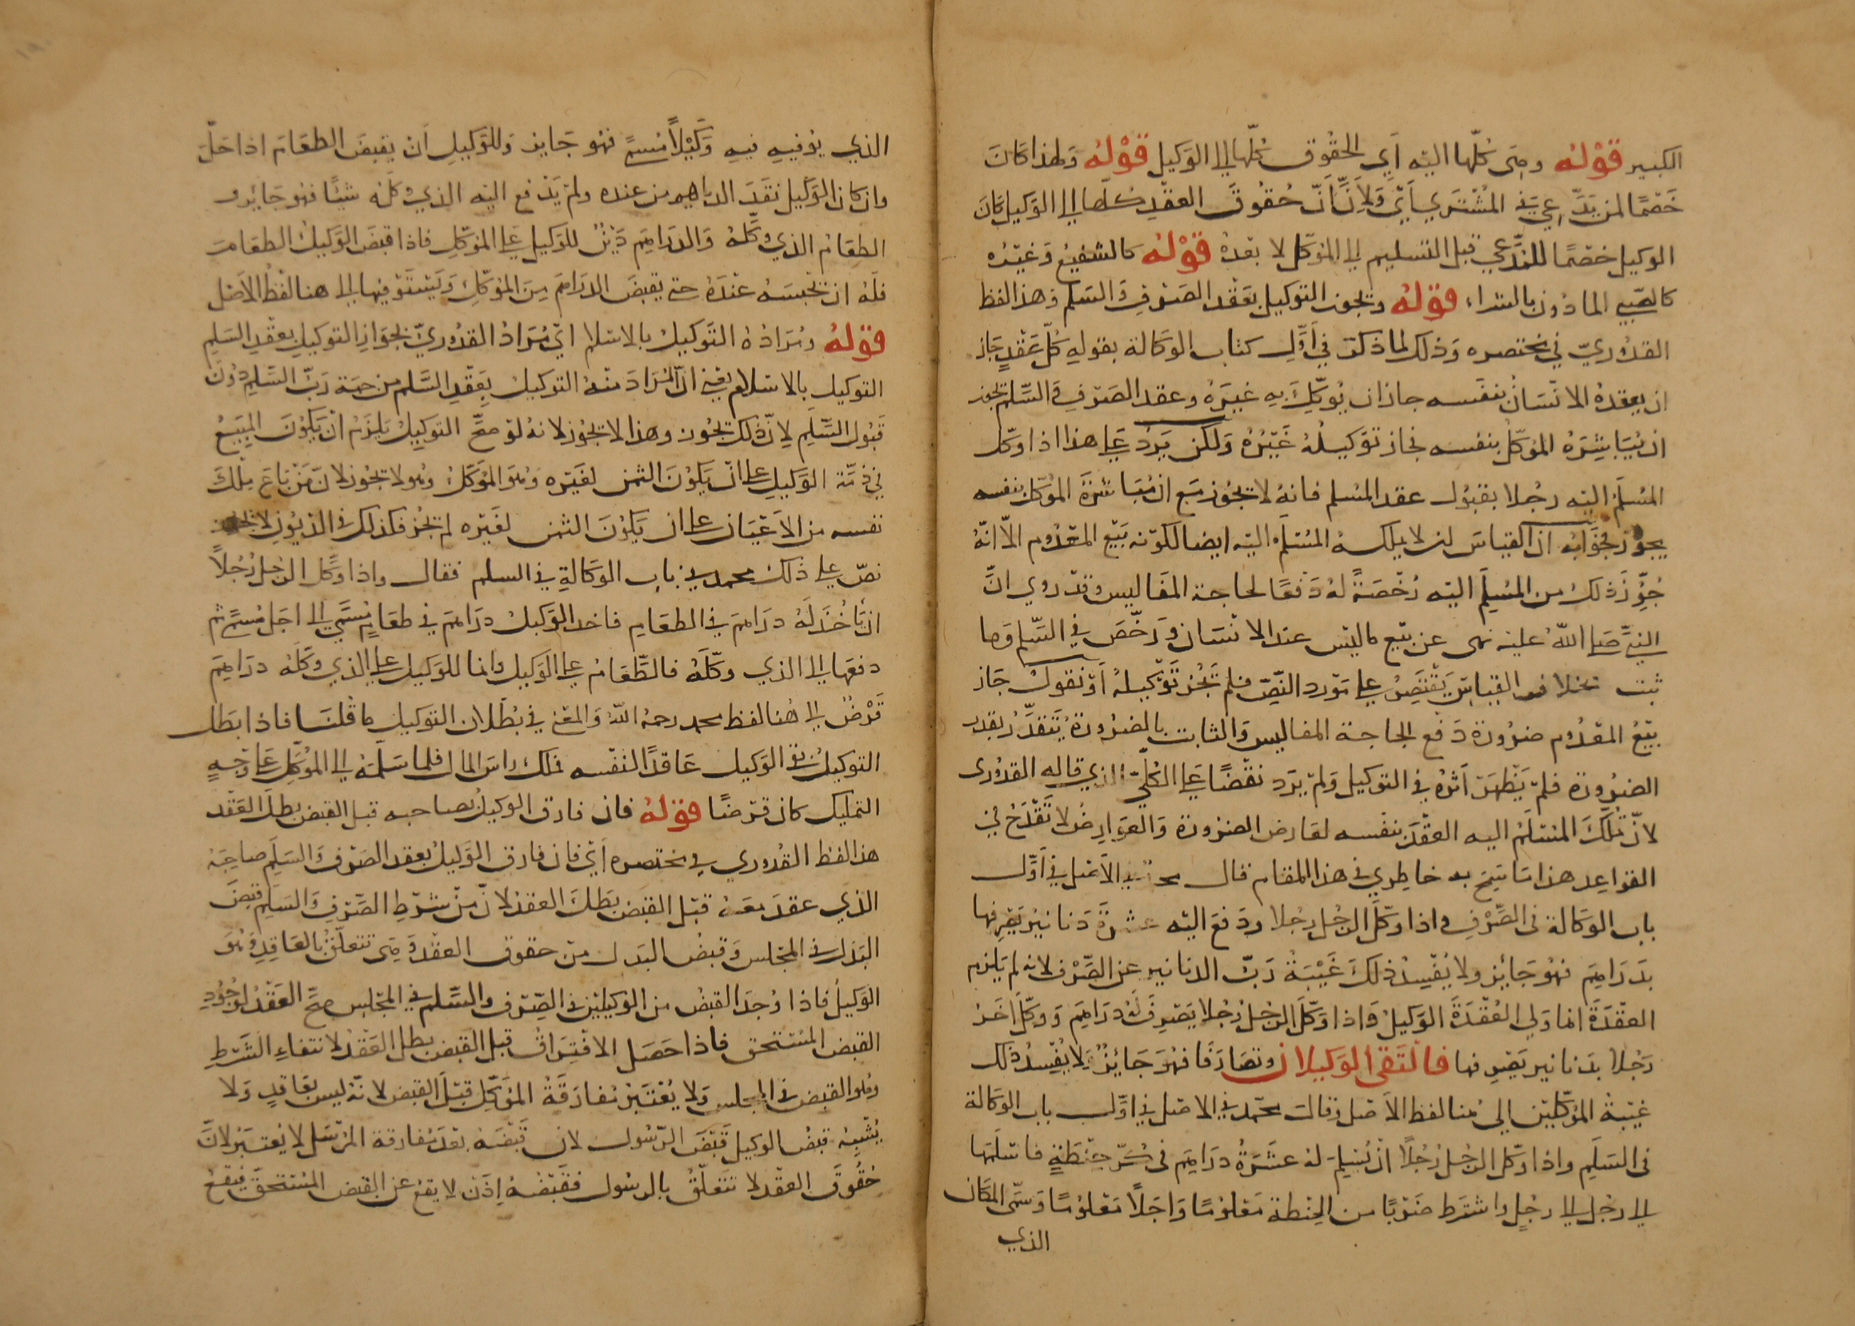 الكبير قوله وهي كلها اليه أي الحقوق كلها إلى الوكيل قوله ولهذا كان
خصمًا لمن يدعي في المشتري أي ولأن حقوق العقد كلها إلى الوكيل كان
الوكيل خصمًا للمدعي قبل التسليم إلى الموكل لا بعده قوله كالشفيع وغيره
كالصبي الماذون بالشراء قوله ويجوز التوكيل بعقد الصرف والسلم وهذا لفظ
القدوري في مختصره وذلك لما ذكر في أول كتاب الوكالة بقوله كل عقد جاز
ان يعقده الانسان بنفسه جاز ان يوكل به غيره وعقد الصرف والسلم يجوز
ان يباشره الموكل بنفسه فجاز توكيله غيره ولكن يرد على هذا اذا وكل
المسلم اليه رجلا بقبول عقد السلم فانه لا يجوز مع ان مباشرة الموكل بنفسه
يجوز فجوابه ان القياس ان لا يملكه المسلم اليه ايضا لكونه بيع المعدوم الا انه
جوز ذلك من المسلم اليه رخصة له دفعًا لحاجة المفاليس وقد روي ان
النبي صلى الله عليه نهى عن بيع ما ليس عند الانسان ورخص في السلم وما
ثبت بخلاف القياس يقتصر على مورد النص فلم يجز توكيله أو نقول جاز
بيع المعدوم ضرورة دفع الحاجة المفاليس والثابت بالضرورة يتقدر بقدر
الضرورة فلم يظهر أثره في التوكيل ولم يرد نقضًا على الكلي الذي قاله القدوري
لان تملك المسلم اليه العقد بنفسه لعارض الضرورة والعوارض لا تقدح في
القواعد هذا ما سنح به خاطري في هذا المقام قال محمد في الأصل في أول
باب الوكالة في الصرف واذا وكل الرجل رجلا ودفع اليه عشرة دنانير يصرفها
بدراهم فهو جائز ولا يفسد ذلك غيبة رب الدنانير عن الصرف لانه لم يلزم
العقدة انما ولي العقدة الوكيل واذا وكل الرجل رجلا يصرف له دراهم ووكل آخر
رجلا بدنانير يصرفها فالتقى الوكيلان وتصارفا فهو جائز ولا يفسد ذلك
غيبة الموكلين إلى هنا لفظ الأصل وقال محمد في الاصل في اول باب الوكالة
في السلم واذا وكل الرجل رجلًا ان يسلم له عشرة دراهم في كر حنطة فاسلمها
إلى رجل إلى رجل واشترط ضربًا من الحنطة معلومًا واجلًا معلومًا وسمى المكان
الذي
الذي يوفيه فيه وكيلًا مسمى فهو جايز وللوكيل أن يقبض الطعام اذا حل
وان كان الوكيل نقد الدراهم من عنده ولم يدفع اليه الذي وكله شيئًا فهو جائز و
الطعام الذي وكله والدراهم دين للوكيل على الموكل فاذا قبض الوكيل الطعام
فله ان يحبسه عنده حتى يقبض الدراهم من الموكل ويستوفيها إلى هنا لفظ الأصل
قوله ومراده التوكيل بالاسلام اي مراد القدوري بجواز التوكيل بعقد السلم
التوكيل بالاسلام يعني ان المراد منه التوكيل بعقد السلم من جهة رب السلم دون
قبول السلم لان ذلك يجوز وهذا لا يجوز لانه لو صح التوكيل يلزم ان يكون المبيع
في ذمة الوكيل على ان يكون الثمن لغيره وهو الموكل وهو لا يجوز لان من باع ملك
نفسه من الأعيان على ان يكون الثمن لغيره لم يجز فكذلك في الديون لا يجوز
نص على ذلك محمد في باب الوكالة في السلم فقال واذا وكل الرجل رجلًا
ان يأخذ له دراهم في الطعام فاخذ الوكيل دراهم في طعام مسمى إلى اجل مسمى ثم
دفعها إلى الذي وكله فالطعام على الوكيل وانما للوكيل على الذي وكله دراهم
قرض إلى هنا لفظ محمد رحمه الله والمعنى في بطلان التوكيل ما قلنا فاذا بطل
التوكيل بقي الوكيل عاقدًا لنفسه فملك راس المال فلما سلمه إلى الموكل على وجه
التمليك كان قرضًا قوله فان فارق الوكيل صاحبه قبل القبض بطل العقد
هذا لفظ القدوري في مختصره أي فان فارق الوكيل بعقد الصرف والسلم صاحبه
الذي عقد معه قبل القبض بطل العقد لان من شرط الصرف والسلم قبض
البدل في المجلس وقبض البدل من حقوق العقد وهي تتعلق بالعاقد وهو
الوكيل فاذا وجد القبض من الوكيلين في الصرف والسلم في المجلس صح العقد لوجود
القبض المستحق فاذا حصل الافتراق قبل القبض بطل العقد لانتفاء الشرط
وهو القبض في المجلس ولا يعتبر مفارقة الموكل قبل القبض لانه ليس بعاقد ولا
يشبه قبض الوكيل قبض الرسول لان قبضه بعد مفارقة المرسل لا يعتبر لان
حقوق العقد لا تتعلق بالرسول فقبضه اذن لا يقع عن القبض المستحق فيقع